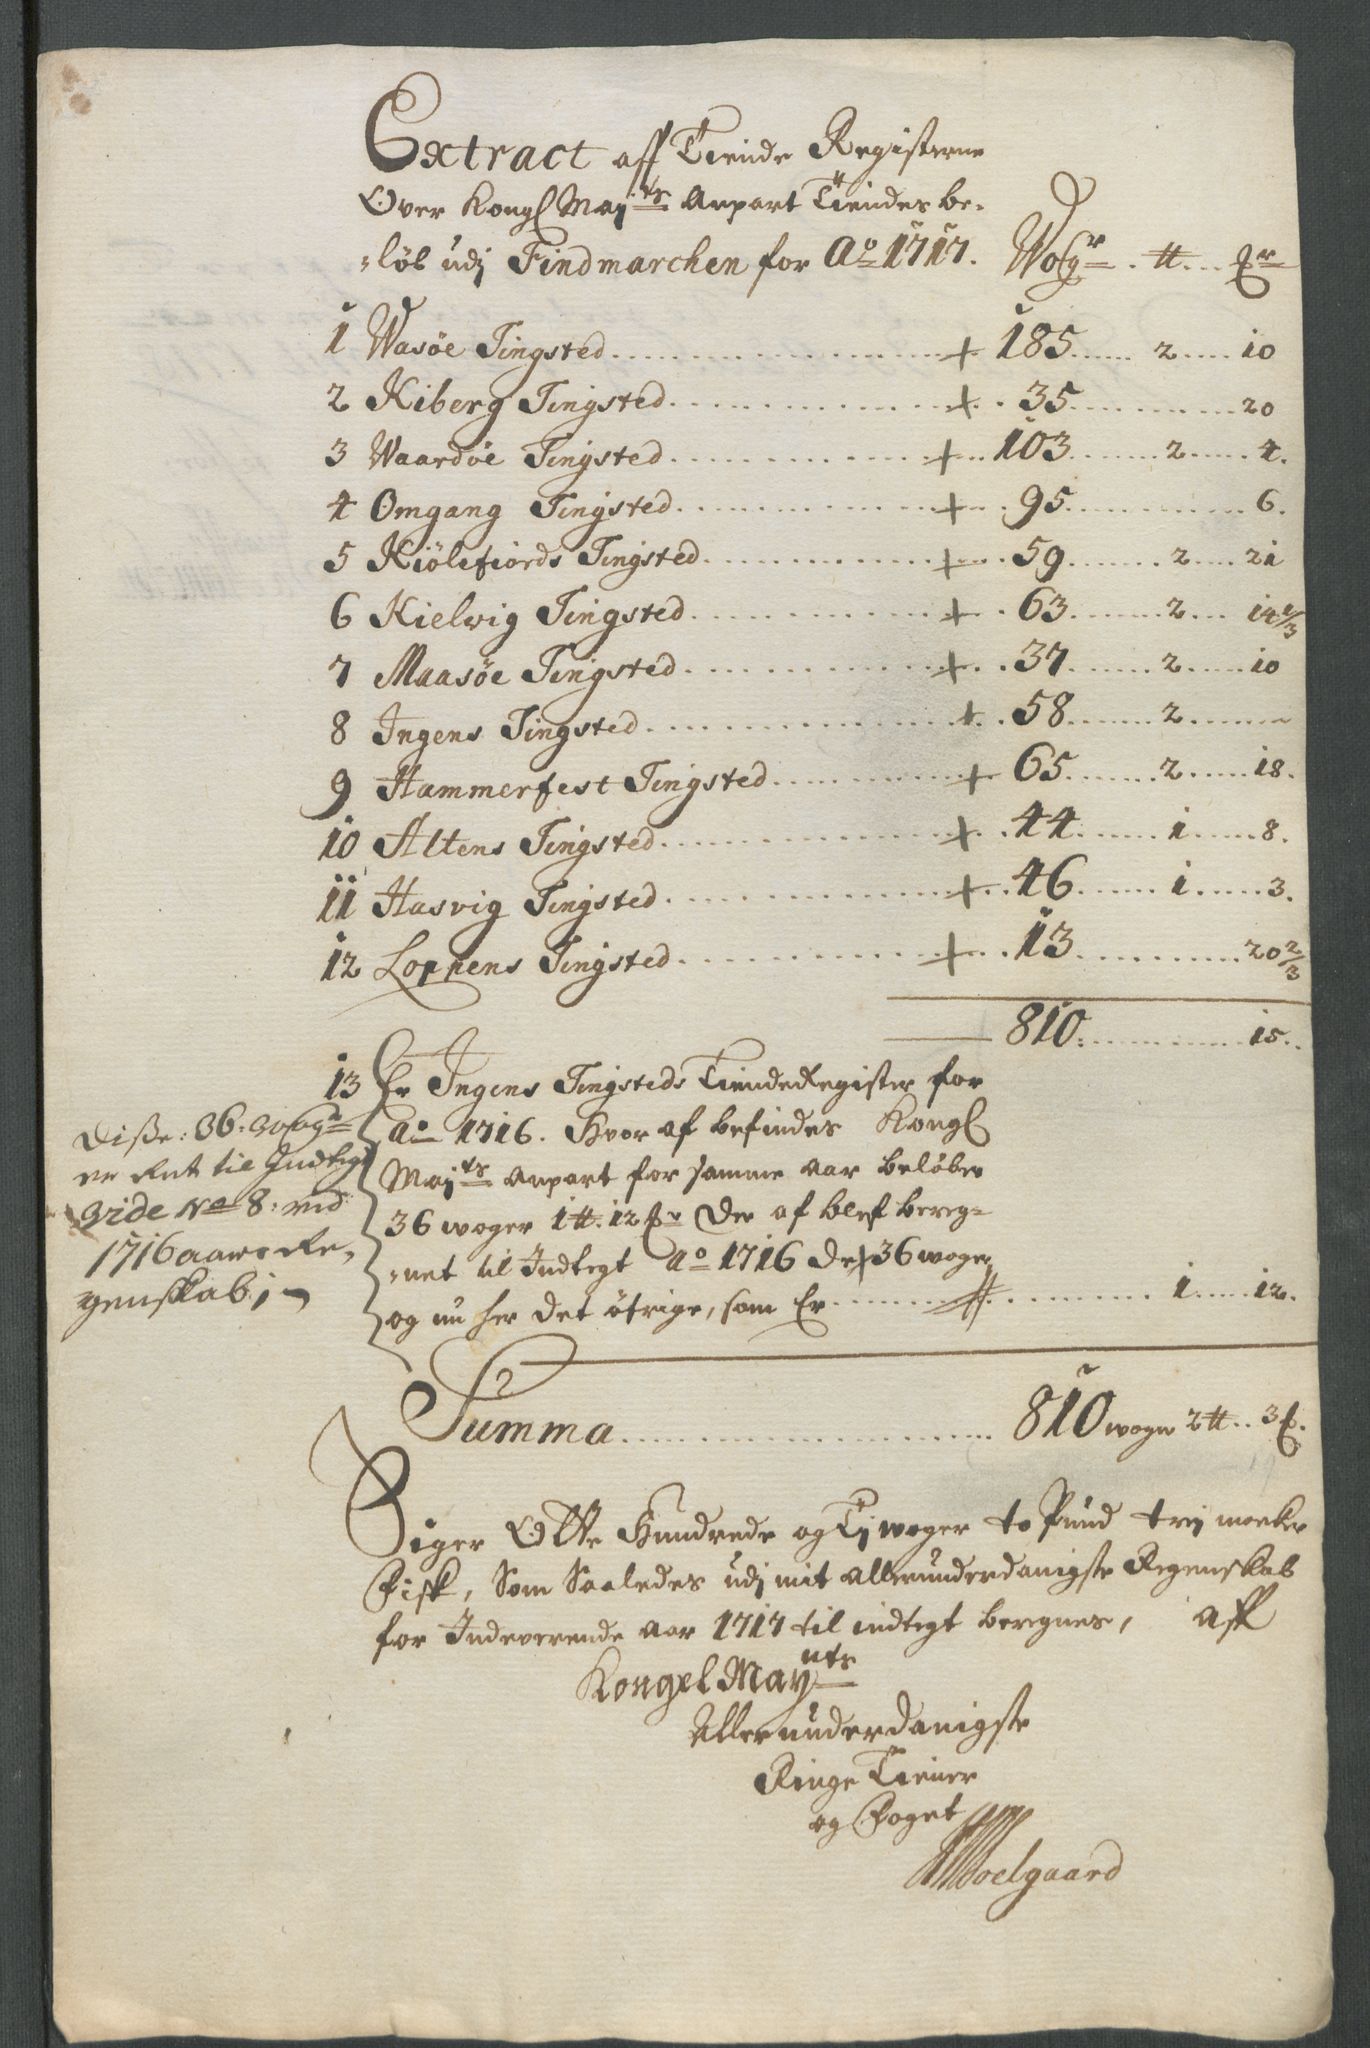 Extract aff Tiende Registerne
Over Kongl May:ts anpart Tiendes be-
-løb udj Findmarchen for Ao 1717. Wogr ℔ Mr
1 Wasöe Tingsted + 185 2 10
2 Kiberg Tingsted + 35 20
3 Waardöe Tingsted + 103 2 4.
4 Omgang Tingsted + 95 6.
5 Kiölefiords Tingsted + 59 2 21
6 Kielvig Tingsted + 63 2 14 1/3
7 Maasöe Tingsted + 37 2 10
8 Ingens Tingsted + 58 2 -
9 Hammerfest Tingsted + 65 2 18.
10 Altens Tingsted + 44 1 8.
11 Hasvig Tingsted + 46 1 3.
12 Loppens Tingsted + 13 20 2/3
810 15.
13 Er Ingens Tingsteds Tiende Register for
Ao 1716. Hvor af befindes Kongl
May:ts anpart for samme aar beløber
36 woger 1 ℔. 12 Mr Der af blef bereg-
-net til Indtegt Ao 1716 de 36 woger
og nu her det öfrige, som Er 1 12.
Disse: 36: wogr
er ført til Indtegt
vide No 8: ved
1716 aars Re-
genskab;
Summa 810 woger 2 ℔ 3 M.
Siger Otte Hundrede og Tj woger to Pund trej marker
Fisk, Som Saaledes udj mit allerunderdanigste Regenskab
for Indeverende aar 1717 til indtegt beregnes, aff
Kongel May:ts
Allerunderdanigste
Ringe Tiener
og Foget
Soelgaard